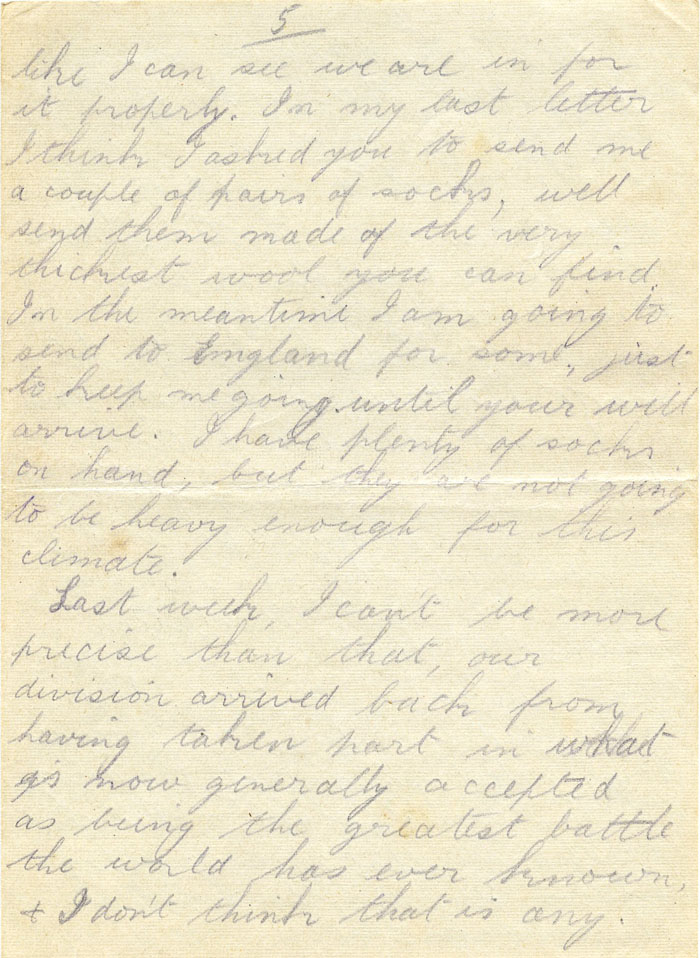 5
like I can see we are in for
it properly. In my last letter
I think I asked you to send me
a couple of pairs of socks, well
send them made of the very
thickest wool you can find.
In the meantime I am going to
send to England for some, just
to keep me going until your will
arrive. I have plenty of socks
on hand, but they are not going
to be heavy enough for this
climate.
Last week, I can't be more
precise than that, our
division arrived back from
having taken part in what
is now generally accepted
as being the greatest battle
the world has ever known,
& I don't think that is any.